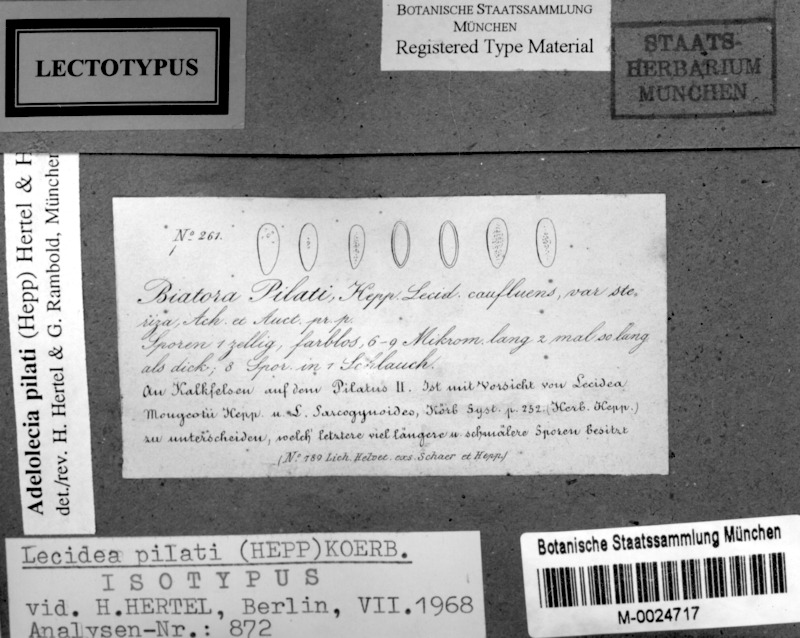 LECTOTYPUS
BOTANISCHE STAATSSAMMLUNG
MÜNCHEN
Registered Type Material
STAATS-
HERBARIUM
MÜNCHEN
Adelolecia pilati (Hepp) Hertel & H
det./rev. H. Hertel & G. Rambold, München
No 261.
Biatora Pilati, Hepp. Lecid. confluens, var ste-
riza, Ach. et Auct. pr. p.
Sporen 1 zellig, farblos, 6-9 Mikrom. lang 2 mal so lang
als dick; 8 Spor. in 1 Schlauch.
An Kalkfelsen auf dem Pilatus II. Ist mit Vorsicht von Lecidea
Mougeotii Hepp. u. L. Sarcogynoides, Körb Syst. p. 252. (Herb. Hepp.)
zu unterscheiden, welch' letztere viel längere u. schmälere Sporen besitzt
(No 789 Lich. Helvet. exs. Schaer et Hepp)
Lecidea pilati (HEPP)KOERB.
ISOTYPUS
vid. H.HERTEL, Berlin, VII.1968
Analysen-Nr.: 872
Botanische Staatssammlung München
M-0024717